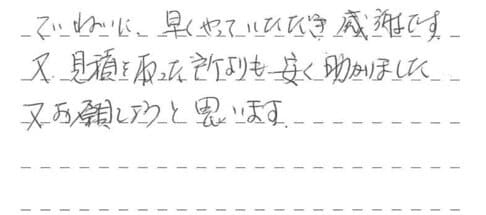 ていねいに、早くやっていただき感謝です
又、見積を取った所よりも安く助かりました
又お願いしようと思います。